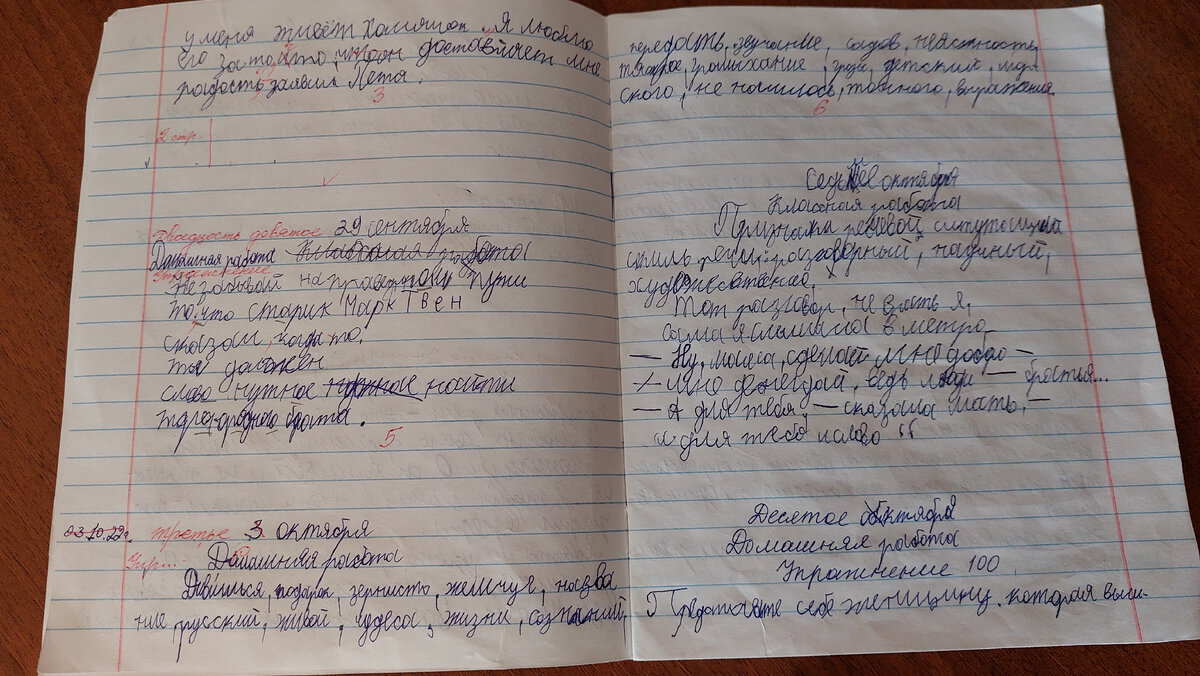 у меня живёт хомячок „Я люблю
его за то, что, он доставляет мне
радость заявил Петя.
3
2 стр.
Двадцать девятое 29 сентября
Домашняя работа Классная работа
Упражнение
Незабывай на правом пути
то, что старик Марк Твен
сказал, когда то,
ты должен
слово нужное нужное найти
брата.
5
03.10.22г. третье 3 октября
Упр...
Домашняя работа
подарок, зернисто, жемчуг, назва
ние русский, живой, чудеса, жизни, сознаний,
передасть, звучание, садов, неясность,
громыхание, груди, детский, мор-
ского, не нашлось, точного, выражения.
6
Седьмое октября
Классная работа
Признаки речевой ситуации
стиль речи: разговорный, научный,
художественное.
Тот разговор, не я,
сама я слышала в метро
— Ну, мама, сделай мне добро —
мне ведь люди — братья...
— А для тебя, — сказала мать, —
и для тебя слово “
Десятое октября
Домашняя работа
Упражнение 100
Представьте себе женщину, которая выш-